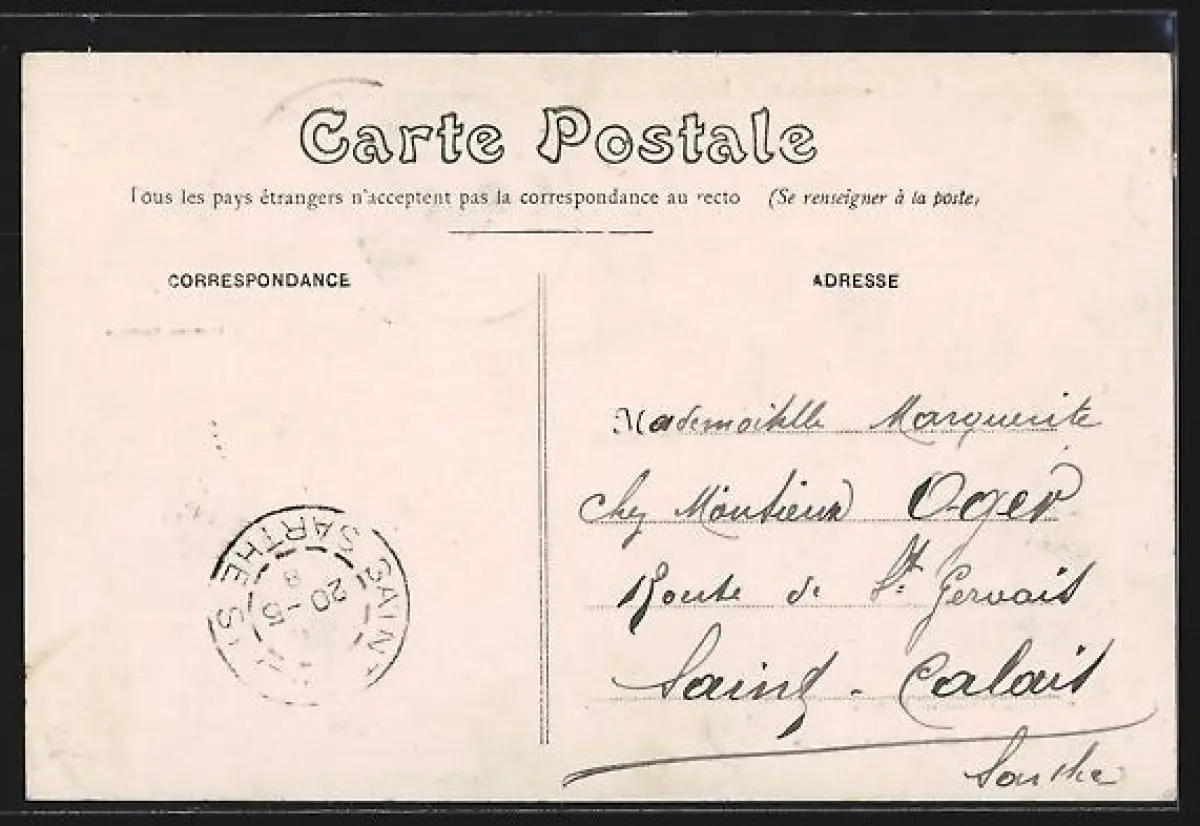 Carte Postale
Tous les pays étrangers n'acceptent pas la correspondance au recto (Se renseigner à la poste)
CORRESPONDANCE
ADRESSE
Mademoiselle Marguerite
chez Monsieur Oger
Route de St Gervais
Saint-Calais
Sarthe
SAINT
SARTHE
20-5